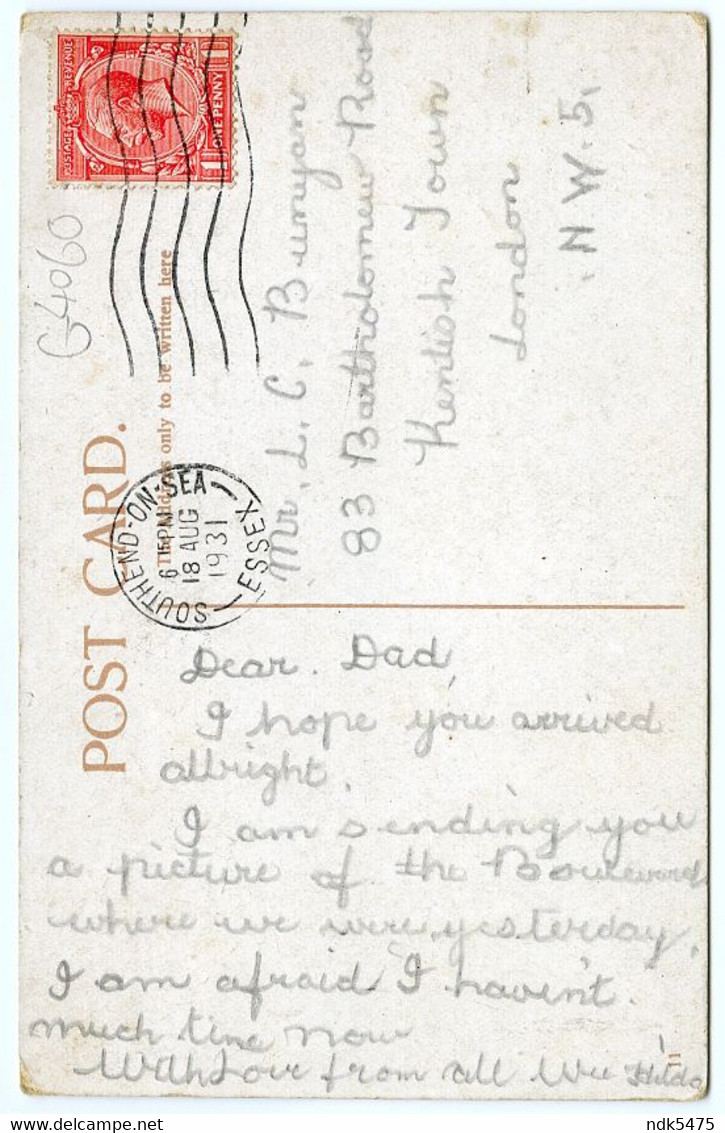 POSTAGE REVENUE
ONE PENNY
G4060
POST CARD.
The address only to be written here
SOUTHEND-ON-SEA
6 15 PM
18 AUG
1931
ESSEX
Mr. L. C. Bunyan
83 Bartholomew Road
Kentish Town
London
N.W.5.
Dear. Dad,
I hope you arrived
allright.
I am sending you
a picture of the Boulevard
where we were yesterday.
I am afraid I haven't.
much time now
With love from all Wee Hilda
ndk5475